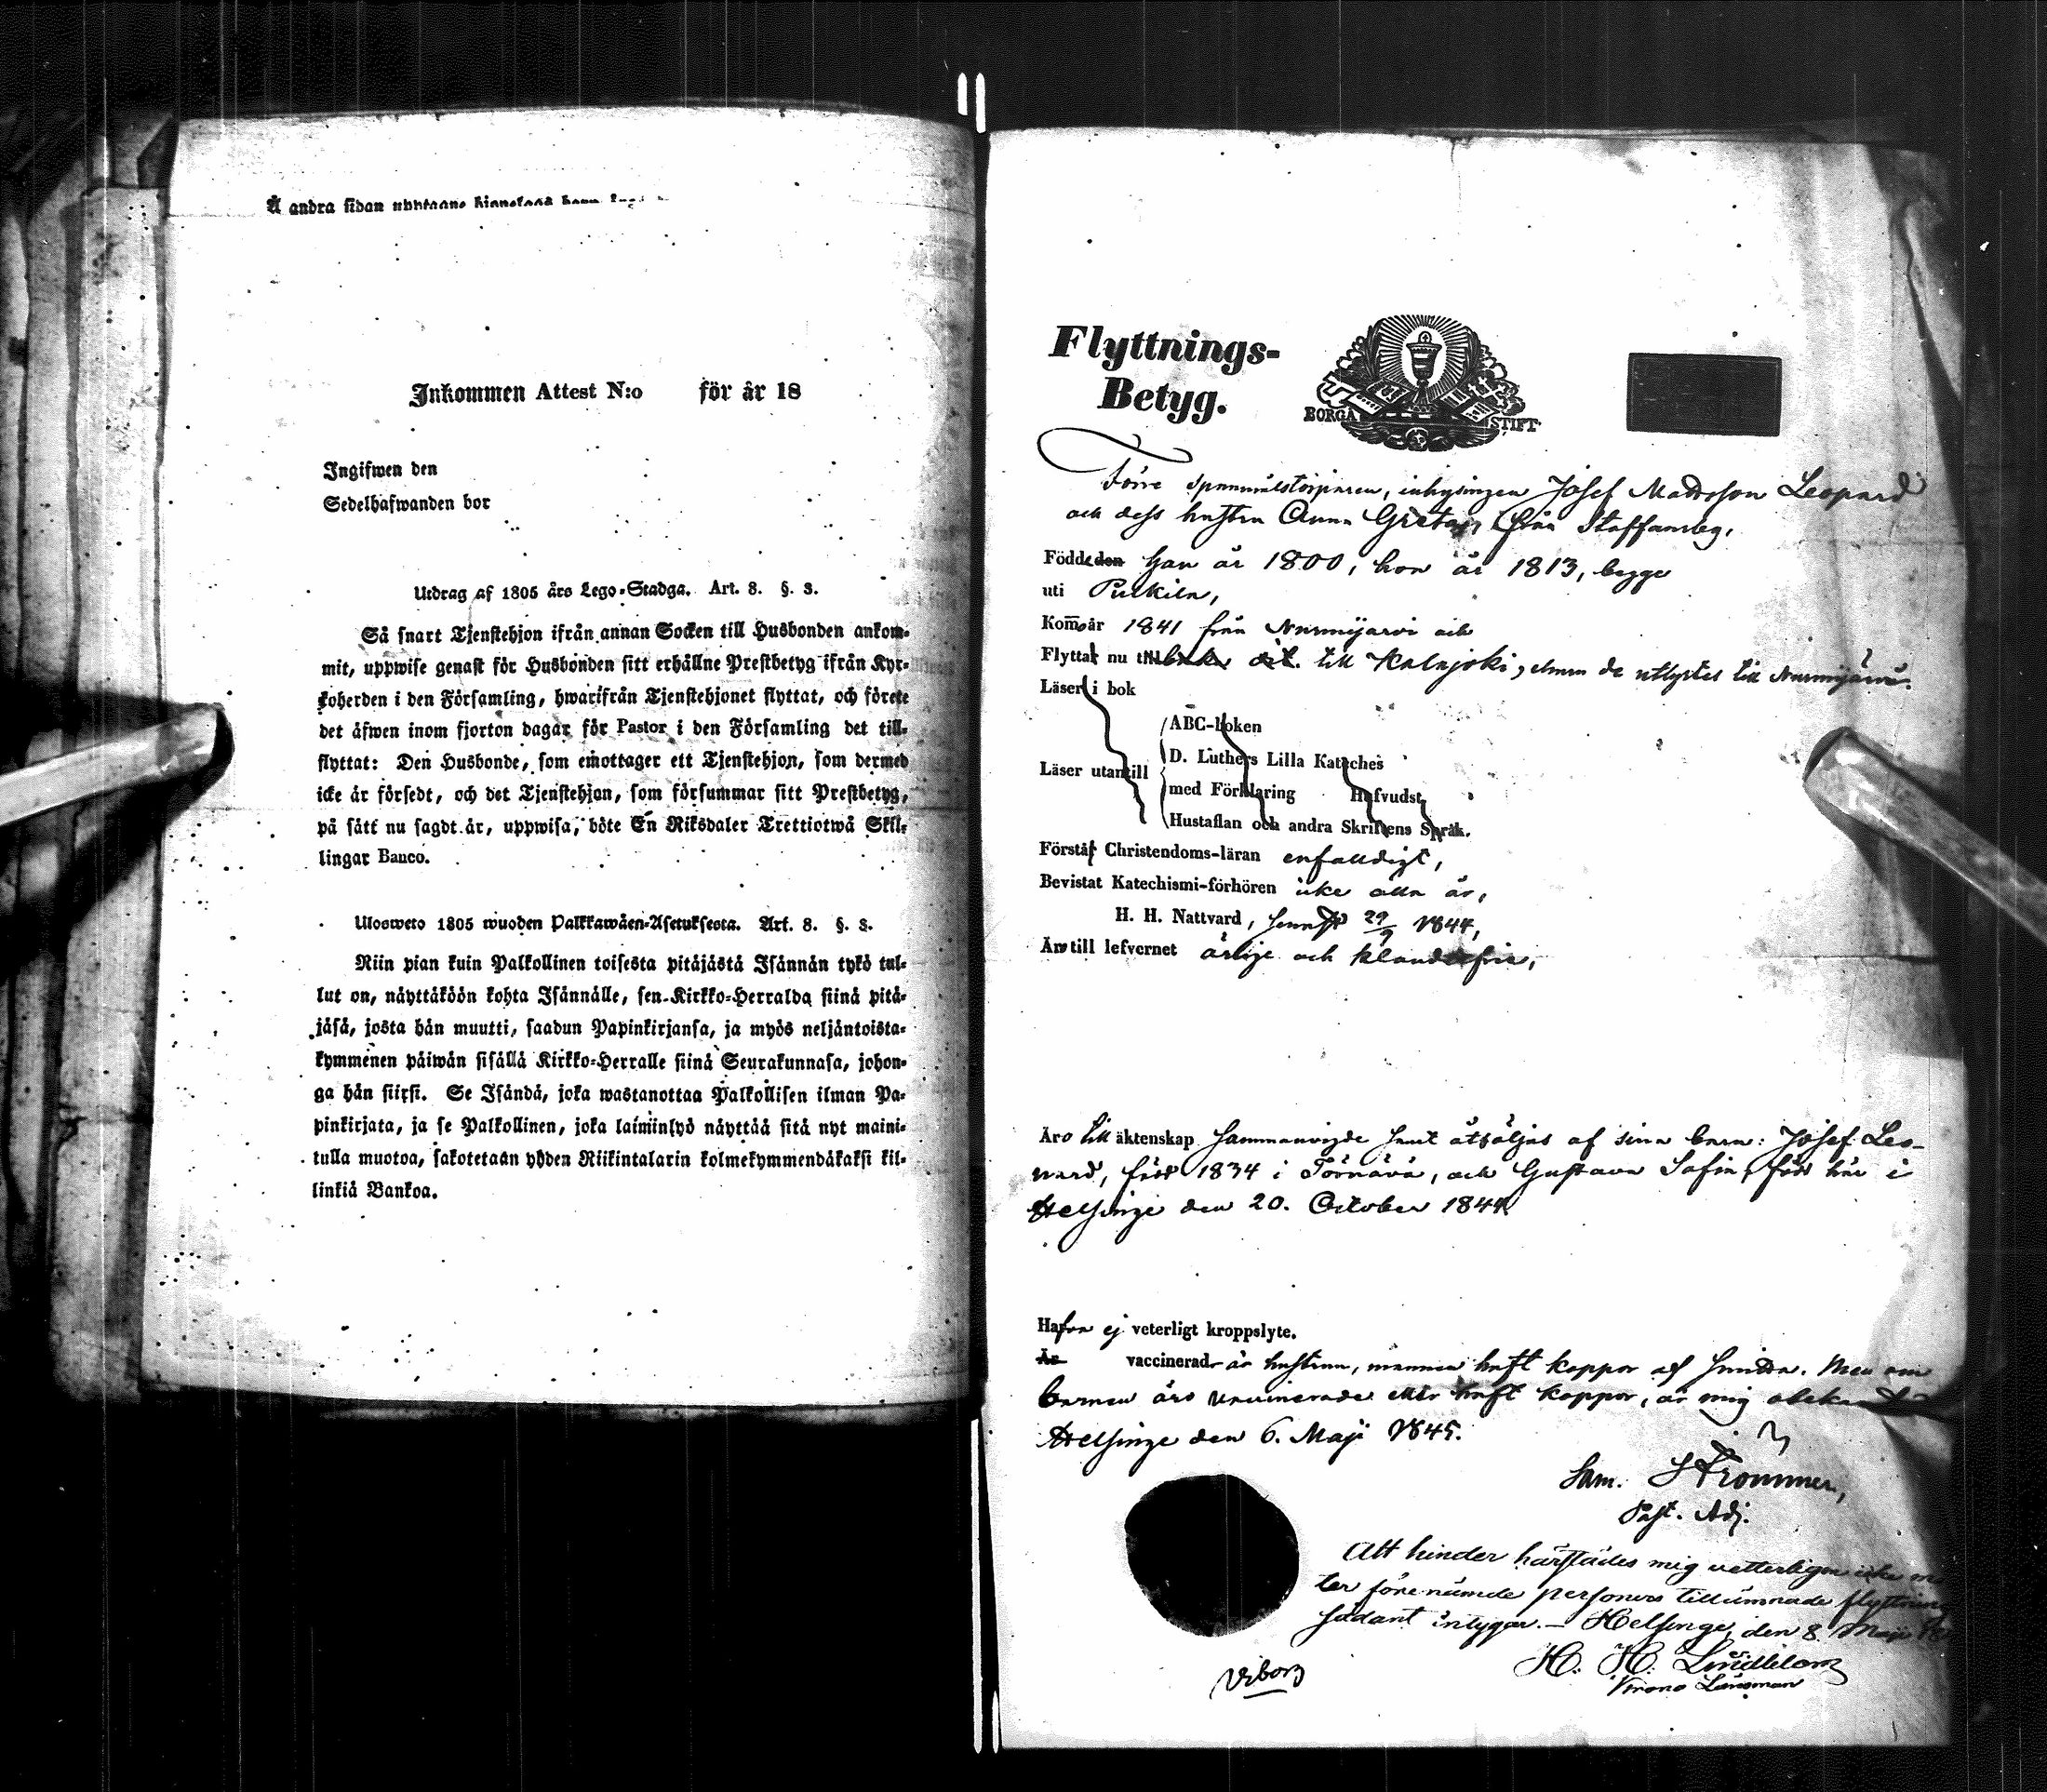 Å andra sidan upptages hjonelags barn
Inkommen Attest N:o för år 18
Ingifwen den
Sedelhafwanden bor
Utdrag af 1805 års Lego-Stadga. Art. 8. §. 3.
Så snart Tjenstehjon ifrån annan Socken till Husbonden ankom-
mit, uppwise genast för Husbonden sitt erhållne Prestbetyg ifrån Kyr-
koherden i den Församling, hwarifrån Tjenstehjonet flyttat, och förete
det äfwen inom fjorton dagar för Pastor i den Församling det till-
flyttat: Den Husbonde, som emottager ett Tjenstehjon, som dermed
icke är försedt, och det Tjenstehjon, som försummar sitt Prestbetyg,
på sätt nu sagdt är, uppwisa, böte En Riksdaler Trettiotwå Skil-
lingar Banco.
Ulosweto 1805 wuoden Palkkawäen-Asetuksesta. Art. 8. §. 3.
Niin pian kuin Palkollinen toisesta pitäjästä Isännän tykö tul-
lut on, näyttäköön kohta Isännälle, sen Kirkko-Herralda siinä pitä-
jäsä, josta hän muutti, saadun Papinkirjansa, ja myös neljäntoista-
kymmenen päiwän sisällä Kirkko-Herralle siinä Seurakunnasa, johon-
ga hän siirsi. Se Isändä, joka wastanottaa Palkollisen ilman Pa-
pinkirjata, ja se Palkollinen, joka laiminlyö näyttää sitä nyt maini-
tulla muotoa, sakotetaan yhden Riikintalarin kolmekymmendäkaksi kil-
linkiä Bankoa.
Flyttnings-
Betyg.
BORGÅ STIFT
Förre Spannmålstorparen, inhysingen Josef Mattsson Leopard
och dess hustru Anna Greta, från Staffansby,
Födde den han år 1800, hon år 1813, begge
uti Puikila,
Kommo år 1841 från Nurmijärvi och
Flytta nu till till Kalajoki, ehuru de utlystes till Nurmijärvi.
Läser i bok
ABC-boken
D. Luthers Lilla Kateches
Läser utantill med Förklaring Hafvudst.
Hustaflan och andra Skriftens Språk.
Förstå Christendoms-läran enfaldigt,
Bevistat Katechismi-förhören icke alla år,
H. H. Nattvard, senast 29/9 1844,
Äro till lefvernet ärlige och klanderfrie,
Äro till äktenskap sammanvigde samt åtföljas af sina barn: Josef Leo-
nard, född 1834 i Törnävä, och Gustava Sofia, född här i
Helsinge den 20. October 1844
Hafva ej veterligt kroppslyte.
Är vaccinerad är hustrun, mannen haft koppor af smitta. Men om
barnen äro vaccinerade eller haft koppor, är mig obekant
Helsinge den 6. Maji 1845.
Sam. Strömmer,
Past. Adj.
Att hinder härstädes mig vetterligen icke mö
ter förenämde personers tillämnade flyttning
sådant intygar. — Helsinge, den 8 Maji
H. H. Lindblom
Krono Länsman
Viborg